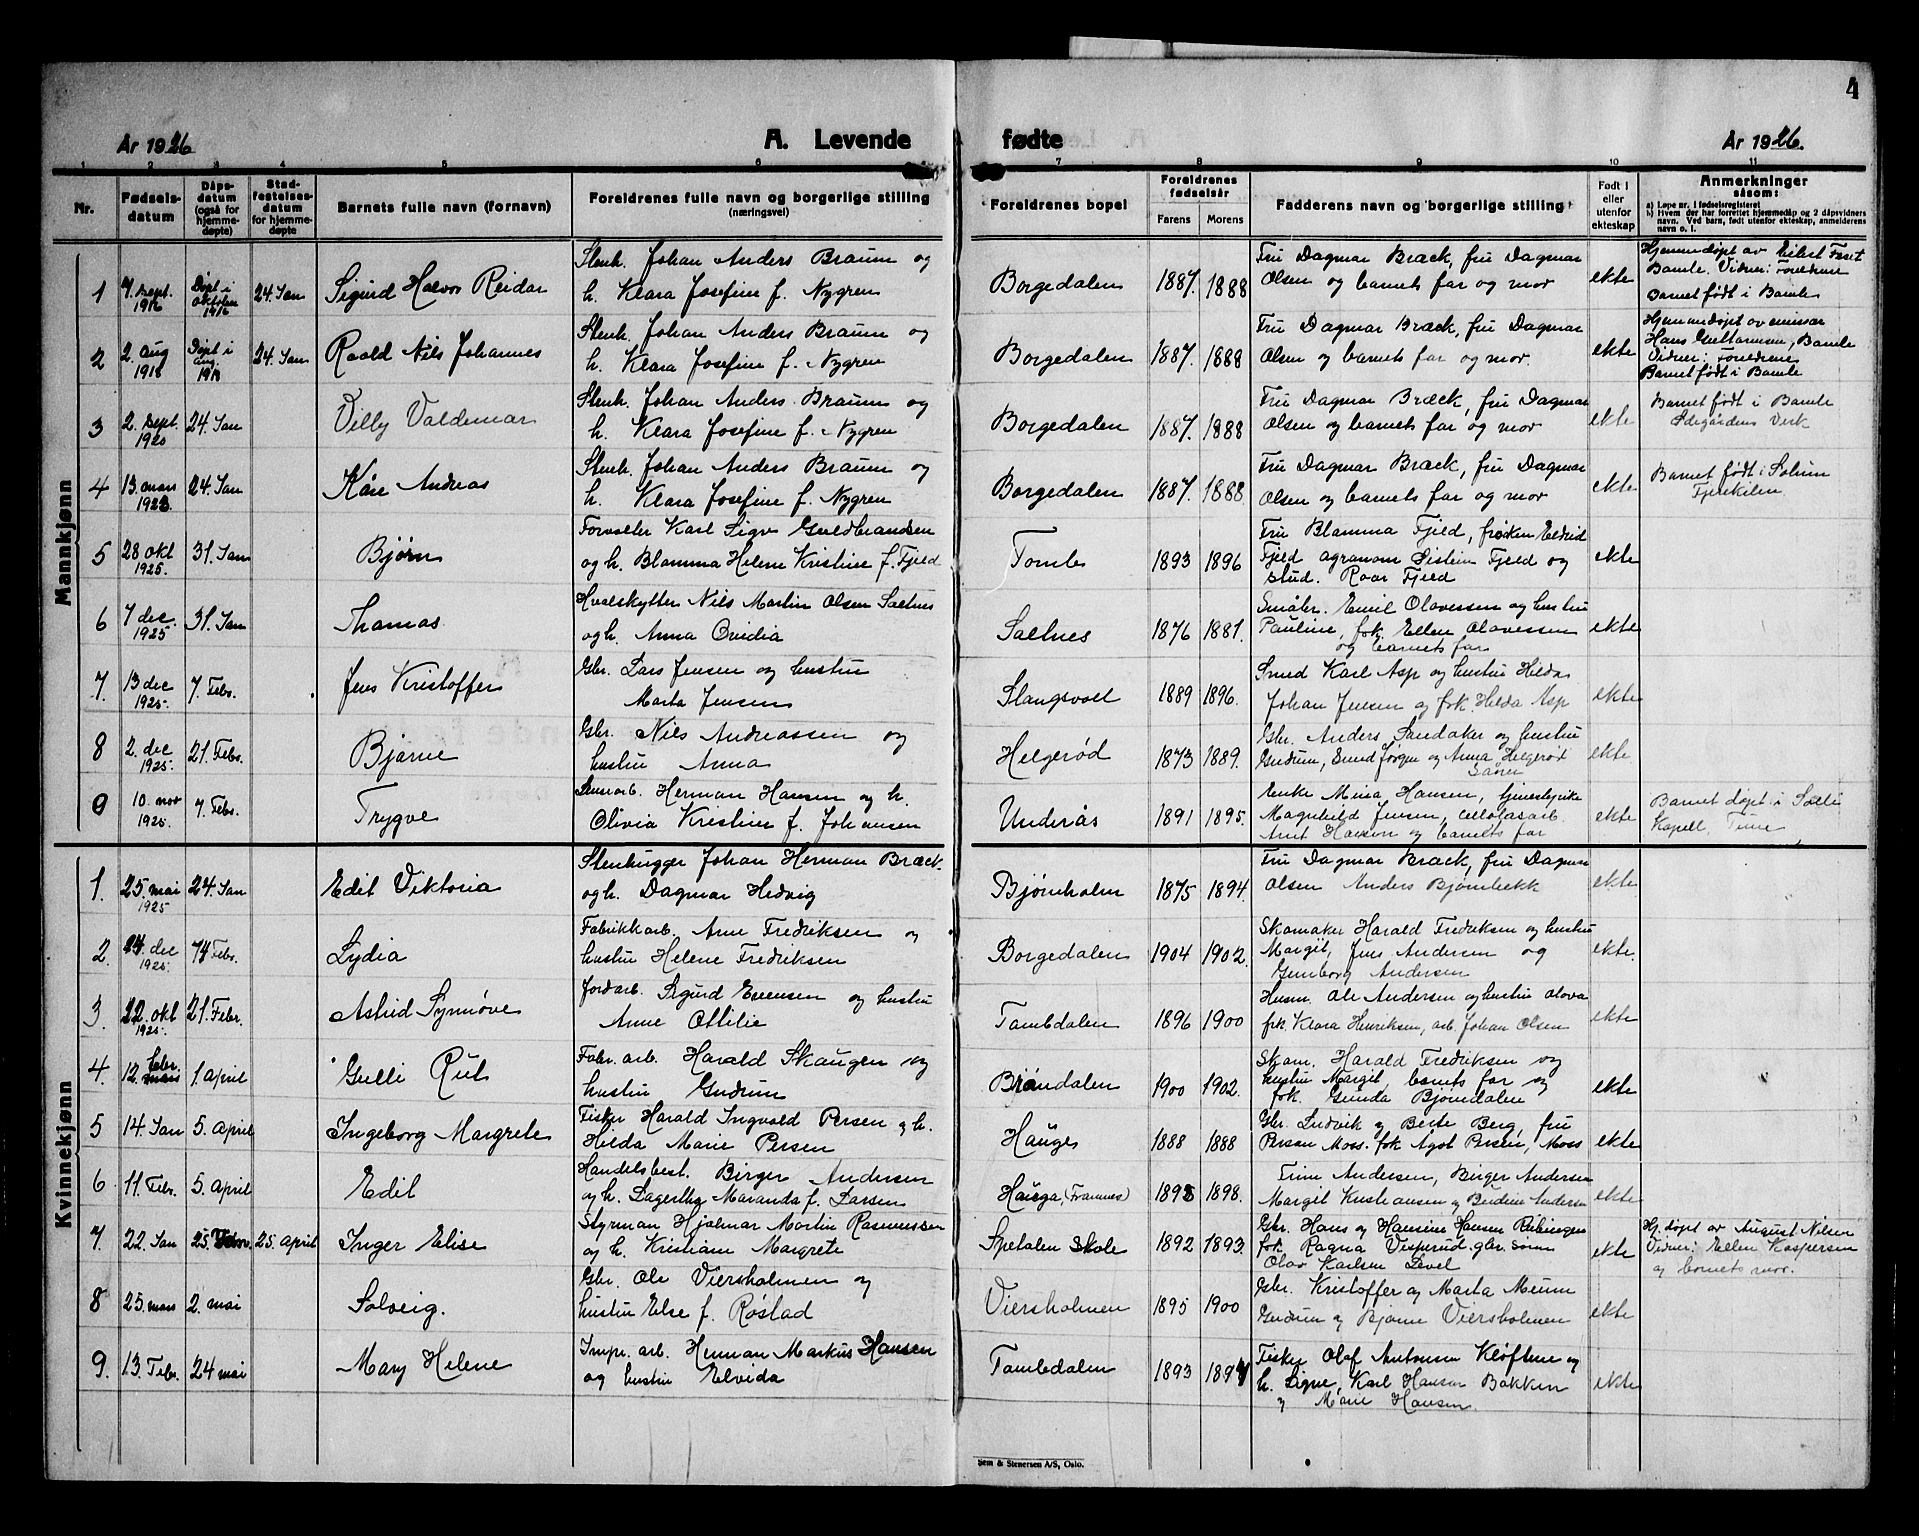 4
År 1926
A. Levende
fødte
År 1926.
1 2 3 4 5 6 7 8 9 10 11
Nr.
Fødsels-
datum
Dåps-
datum
(også for
hjemme-
døpte)
Stad-
festelses-
datum
for hjemme-
døpte
Barnets fulle navn (fornavn)
Foreldrenes fulle navn og borgerlige stilling
(næringsvei)
Foreldrenes bopel
Foreldrenes
fødselsår
Farens Morens
Fadderens navn og borgerlige stilling
Født i
eller
utenfor
ekteskap
Anmerkninger
såsom:
a) Løpe nr. i fødselsregisteret
b) Hvem der har forrettet hjemmedåp og 2 dåpsvidners
navn. Ved barn, født utenfor ekteskap, anmelderens
navn o. l.
Mannkjønn
1 7. Sept. 1916 Døpt i oktober 1916 24. Jan Sigurd Halvor Reidar
Stenh. Johan Anders Braum og
h. Klara Josefine f. Nygren
Borgedalen 1887. 1888
Fru Dagmar Bræck, fru Dagmar
Olsen og barnets far og mor
ekte
Hjemmedøpt av
Bamle. Vidner: Foreldrene
Barnet født i Bamle
2 2. aug 1918 Døpt i aug. 1918 24. Jan Roald Nils Johannes
Stenh. Johan Anders Braum og
h. Klara Josefine f. Nygren
Borgedalen 1887. 1888
Fru Dagmar Bræck, fru Dagmar
Olsen og barnets far og mor
ekte
Hjemmedøpt av emissær
Hans Gulltamsen, Bamle
Vidner: Foreldrene
Barnet født i Bamle
3 2. Sept. 1920 24. Jan Villy Valdemar
Stenh. Johan Anders Braum og
h. Klara Josefine f. Nygren
Borgedalen 1887. 1888
Fru Dagmar Bræck, fru Dagmar
Olsen og barnets far og mor
ekte
Barnet født i Bamle
Ødegårdens Verk
4 13. mars 1923 24. Jan Kåre Andreas
Stenh. Johan Anders Braum og
h. Klara Josefine f. Nygren
Borgedalen 1887. 1888
Fru Dagmar Bræck, fru Dagmar
Olsen og barnets far og mor
ekte
Barnet født i Solum
5 28 okt 1925. 31. Jan Bjørn
Forvalter Karl Sigv Guldbrandsen
og h. Blamma Helene Kristine f. Fjeld
Tomb 1893 1896
Fru Blamma Fjeld, frøken Eldrid
Fjeld agronom Øistein Fjeld og
stud. Roar Fjeld
ekte
6 7 dec. 1925 31. Jan Thomas
Hvalskytter Nils Martin Olsen Saltnes
og h. Anna Ovidia
Saltnes 1876 1881.
Småbr. Emil Olavessen og hustru
Pauline, frk. Ellen Olavessen
og barnets far
ekte
7. 13 dec 1925. 7. Febr. Jens Kristoffer
Gbr. Lars Jensen og hustru
Marta Jensen
Slangsvoll 1889 1896.
Smed Karl Asp og hustru Hilda
Johan Jensen og frk. Hilda Asp
ekte
8 2. dec 1925. 21. Febr. Bjarne
Gbr. Nils Andreassen og
hustru Anna
Helgerød 1873 1889.
Gbr. Anders Sandaker og hustru
Gudrun, Smed Jørgen og Anna Helgerød
Saner
ekte
9 10. nov 1925. 7. Febr. Trygve
Herman Hansen og h.
Olivia Kristine f. Johansen
Underås 1891 1895.
Enke Mina Hansen, tjenestepike
Magnhild Jensen, cellulosearb.
Arnt Hansen og barnets far
ekte
Barnet døpt i
Kapell, Tune
Kvinnekjønn
1. 25. mai 1925 24. Jan Edit Viktoria
Stenhugger Johan Herman Bræck
og h. Dagmar Hedvig
Bjørnholen 1875 1894.
Fru Dagmar Bræck, fru Dagmar
Olsen Anders Bjørnbekk
ekte
2. 24. dec 1925. 14 Febr. Lydia
Fabrikkarb. Arne Fredriksen og
hustru Helene Fredriksen
Borgedalen 1904 1902.
Skomaker Harald Fredriksen og hustru
Margit, Jens Andersen og
Gunborg Andersen
ekte.
3. 22. okt 1925. 21. Febr. Astrid Synnøve
Jordarb. Sigurd Evensen og hustru
Anne Ottilie
Tombdalen 1896 1900
Husm. Ole Andersen og hustru Olova
frk. Klara Henriksen, arb. Johan Olsen
ekte
4. 12. Febr. mars 1. April Gulli Rut
Fabr. arb. Harald Skaugen og
hustru Gudrun
Brondalen 1900 1902.
Skom. Harald Fredriksen og
hustru Margit, barnets far og
frk. Gunda Bjørndalen
ekte
5 14. Jan 5. April Ingeborg Margrete
Fisker Harald Ingvald Persen og h.
Hilda Marie Persen
Hauge 1888 1888
Gbr. Ludvik og Berte Berg, fru
Persen Moss. frk Agot Persen, Moss
ekte
6 11. Febr. 5. April Edit
Handelsbest. Birger Andersen
og h. Lagertha Maranda f. Larsen
Hauga, (Framnes) 1893 1898.
Trine Andersen, Birger Andersen
Margit Kristiansen og Andersen
ekte
7. 22. Jan 25. Febr. 25. April Inger Elise
Styrman Hjalmar Martin Rasmussen
og h. Kristiane Margrete
Spetalen Skole 1892 1893.
Gbr. Hans og Hansine Hansen
frk. Ragna Visperud. gbr. sønn
Olav Karlsen Level
ekte
Hj. døpt av August Nilsen
Vidner: Ellen Kaspersen
og barnets mor.
8 25. mars 2. mai Solveig.
Gbr. Ole Viersholmen og
hustru Else f. Røstad
Viersholmen 1895 1900
Gbr. Kristoffer og Marta Meum
Gudrun og Bjarne Viersholmen
ekte
9. 13. Febr. 24 mai Mary Helene
Impr. arb. Herman Markus Hansen
og hustru Elvida
Tombdalen 1893 1894
Fisker Olaf Antonsen Kløftene og
h. Signe, Karl Hansen Bakken
og Marie Hansen.
ekte
Sem & Stenersen A/S, Oslo.